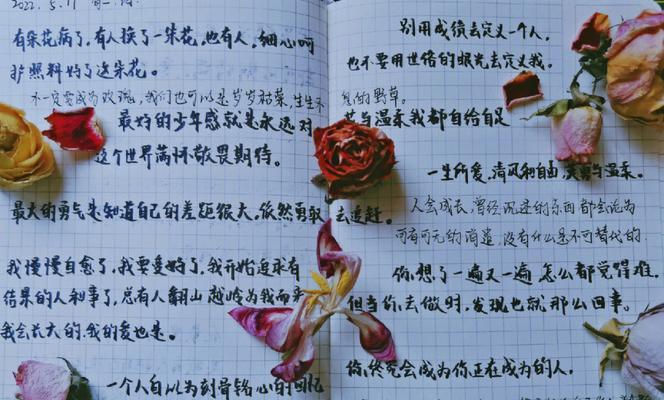 2022. 5. 11
有朵花病了,有人换了一朵花,也有人,细心呵
护照料好了这朵花。
不一定要成为玫瑰,我们也可以是岁岁枯荣,生生不
最好的少年感就是永远对
这个世界满怀敬畏期待。
最大的勇气是知道自己的差距很大,依然勇敢去追赶。
我慢慢自愈了,我要变好了,我开始追求有
结果的人和事了,总有人翻山越岭为我而来
我会长大的,我的爱也是。
一个人自以为刻骨铭心的回忆
别用成绩去定义一个人,
也不要用世俗的眼光去定义我。
的野草。
与温柔我都自给自足
一生所爱,清风和自由,与温柔。
人会成长,曾经沉迷的东西都会沦为
可有可无的消遣,没有什么是不可替代的.
你想了一遍又一遍,怎么都觉得难.
但当你去做时,发现也就那么回事。
你终究会成为你正在成为的人.